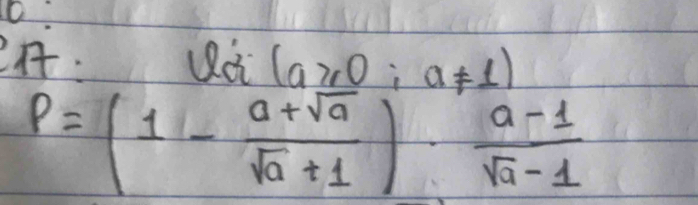 17. Với (a ⩾ 0 ; a ≠ 1)
P = ( 1 - \frac{a + √a}{√a + 1} ) . \frac{a - 1}{√a - 1}